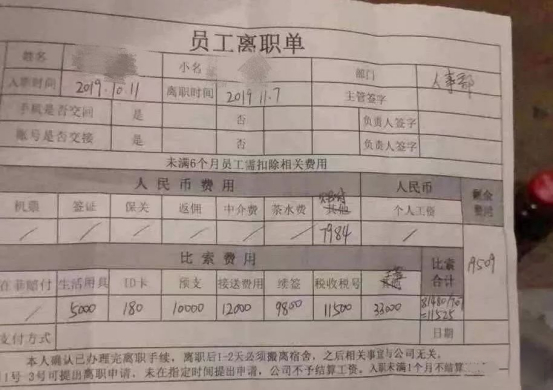 员工离职单
姓名 小名 部门 人事部
入职时间 2019.10.11 离职时间 2019 11.7 主管签字
手机是否交回 是 否 负责人签字
账号是否交接 是 否 负责人签字
未满6个月员工需扣除相关费用
人民币费用 人民币 剩余费用
机票 签证 保关 返佣 中介费 茶水费 其他 个人工资
/ / / / / / 7984 / 19509
比索费用 比索合计
生活用具 ID卡 预支 接送费用 续签 税收税号
/ 5000 180 10000 12000 9800 11500 33000 =11525
支付方式 日期
本人确认已办理完离职手续，离职后1-2天必须搬离宿舍，之后相关事宜与公司无关。
1号-3号可提出离职申请，未在指定时间提出申请，公司不予结算工资，入职未满1个月不结算